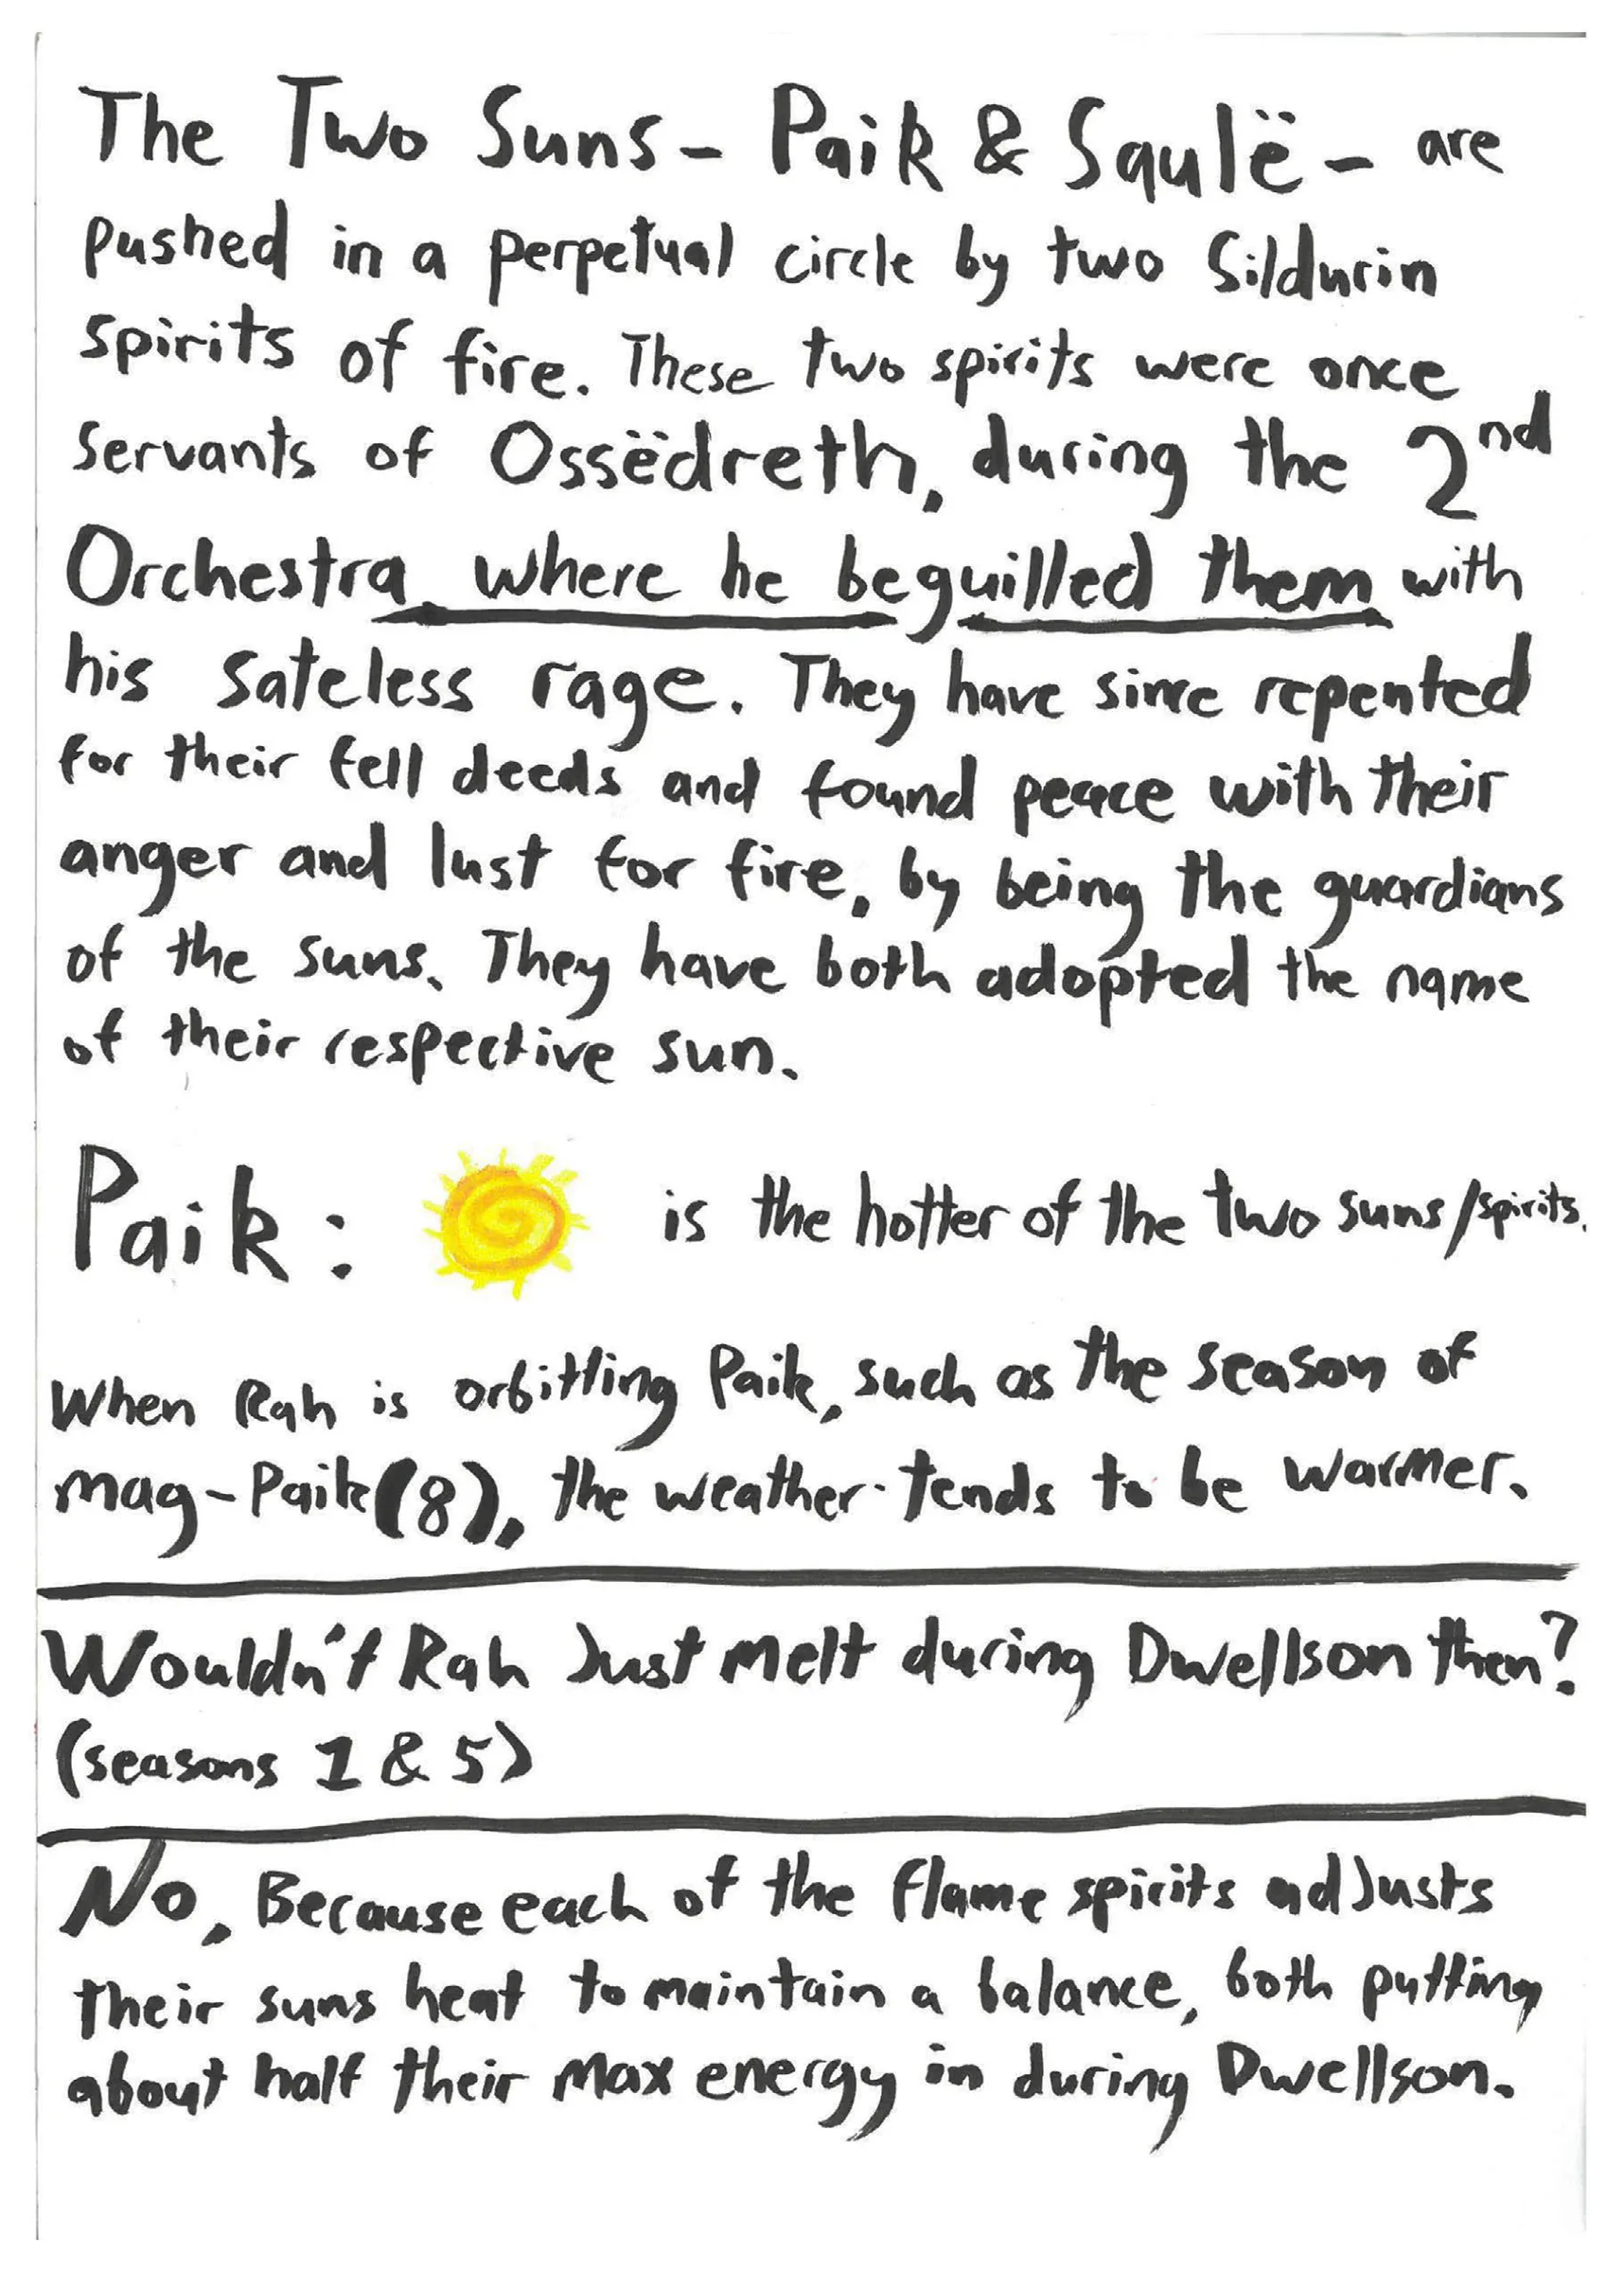 The Two Suns - Paik & Saulë - are
pushed in a perpetual circle by two Sildurin
spirits of fire. These two spirits were once
servants of Ossëdreth, during the 2nd
Orchestra where he beguilled them with
his sateless rage. They have since repented
for their fell deeds and found peace with their
anger and lust for fire, by being the guardians
of the suns. They have both adopted the name
of their respective sun.
Paik: is the hotter of the two suns/spirits.
When Rah is orbitting Paik, such as the season of
mag-Paik (8), the weather tends to be warmer.
Wouldn't Rah Just Melt during Dwellson then?
(seasons 1 & 5)
No, Because each of the flame spirits adJusts
their suns heat to maintain a balance, both putting
about half their Max energy in during Dwellson.